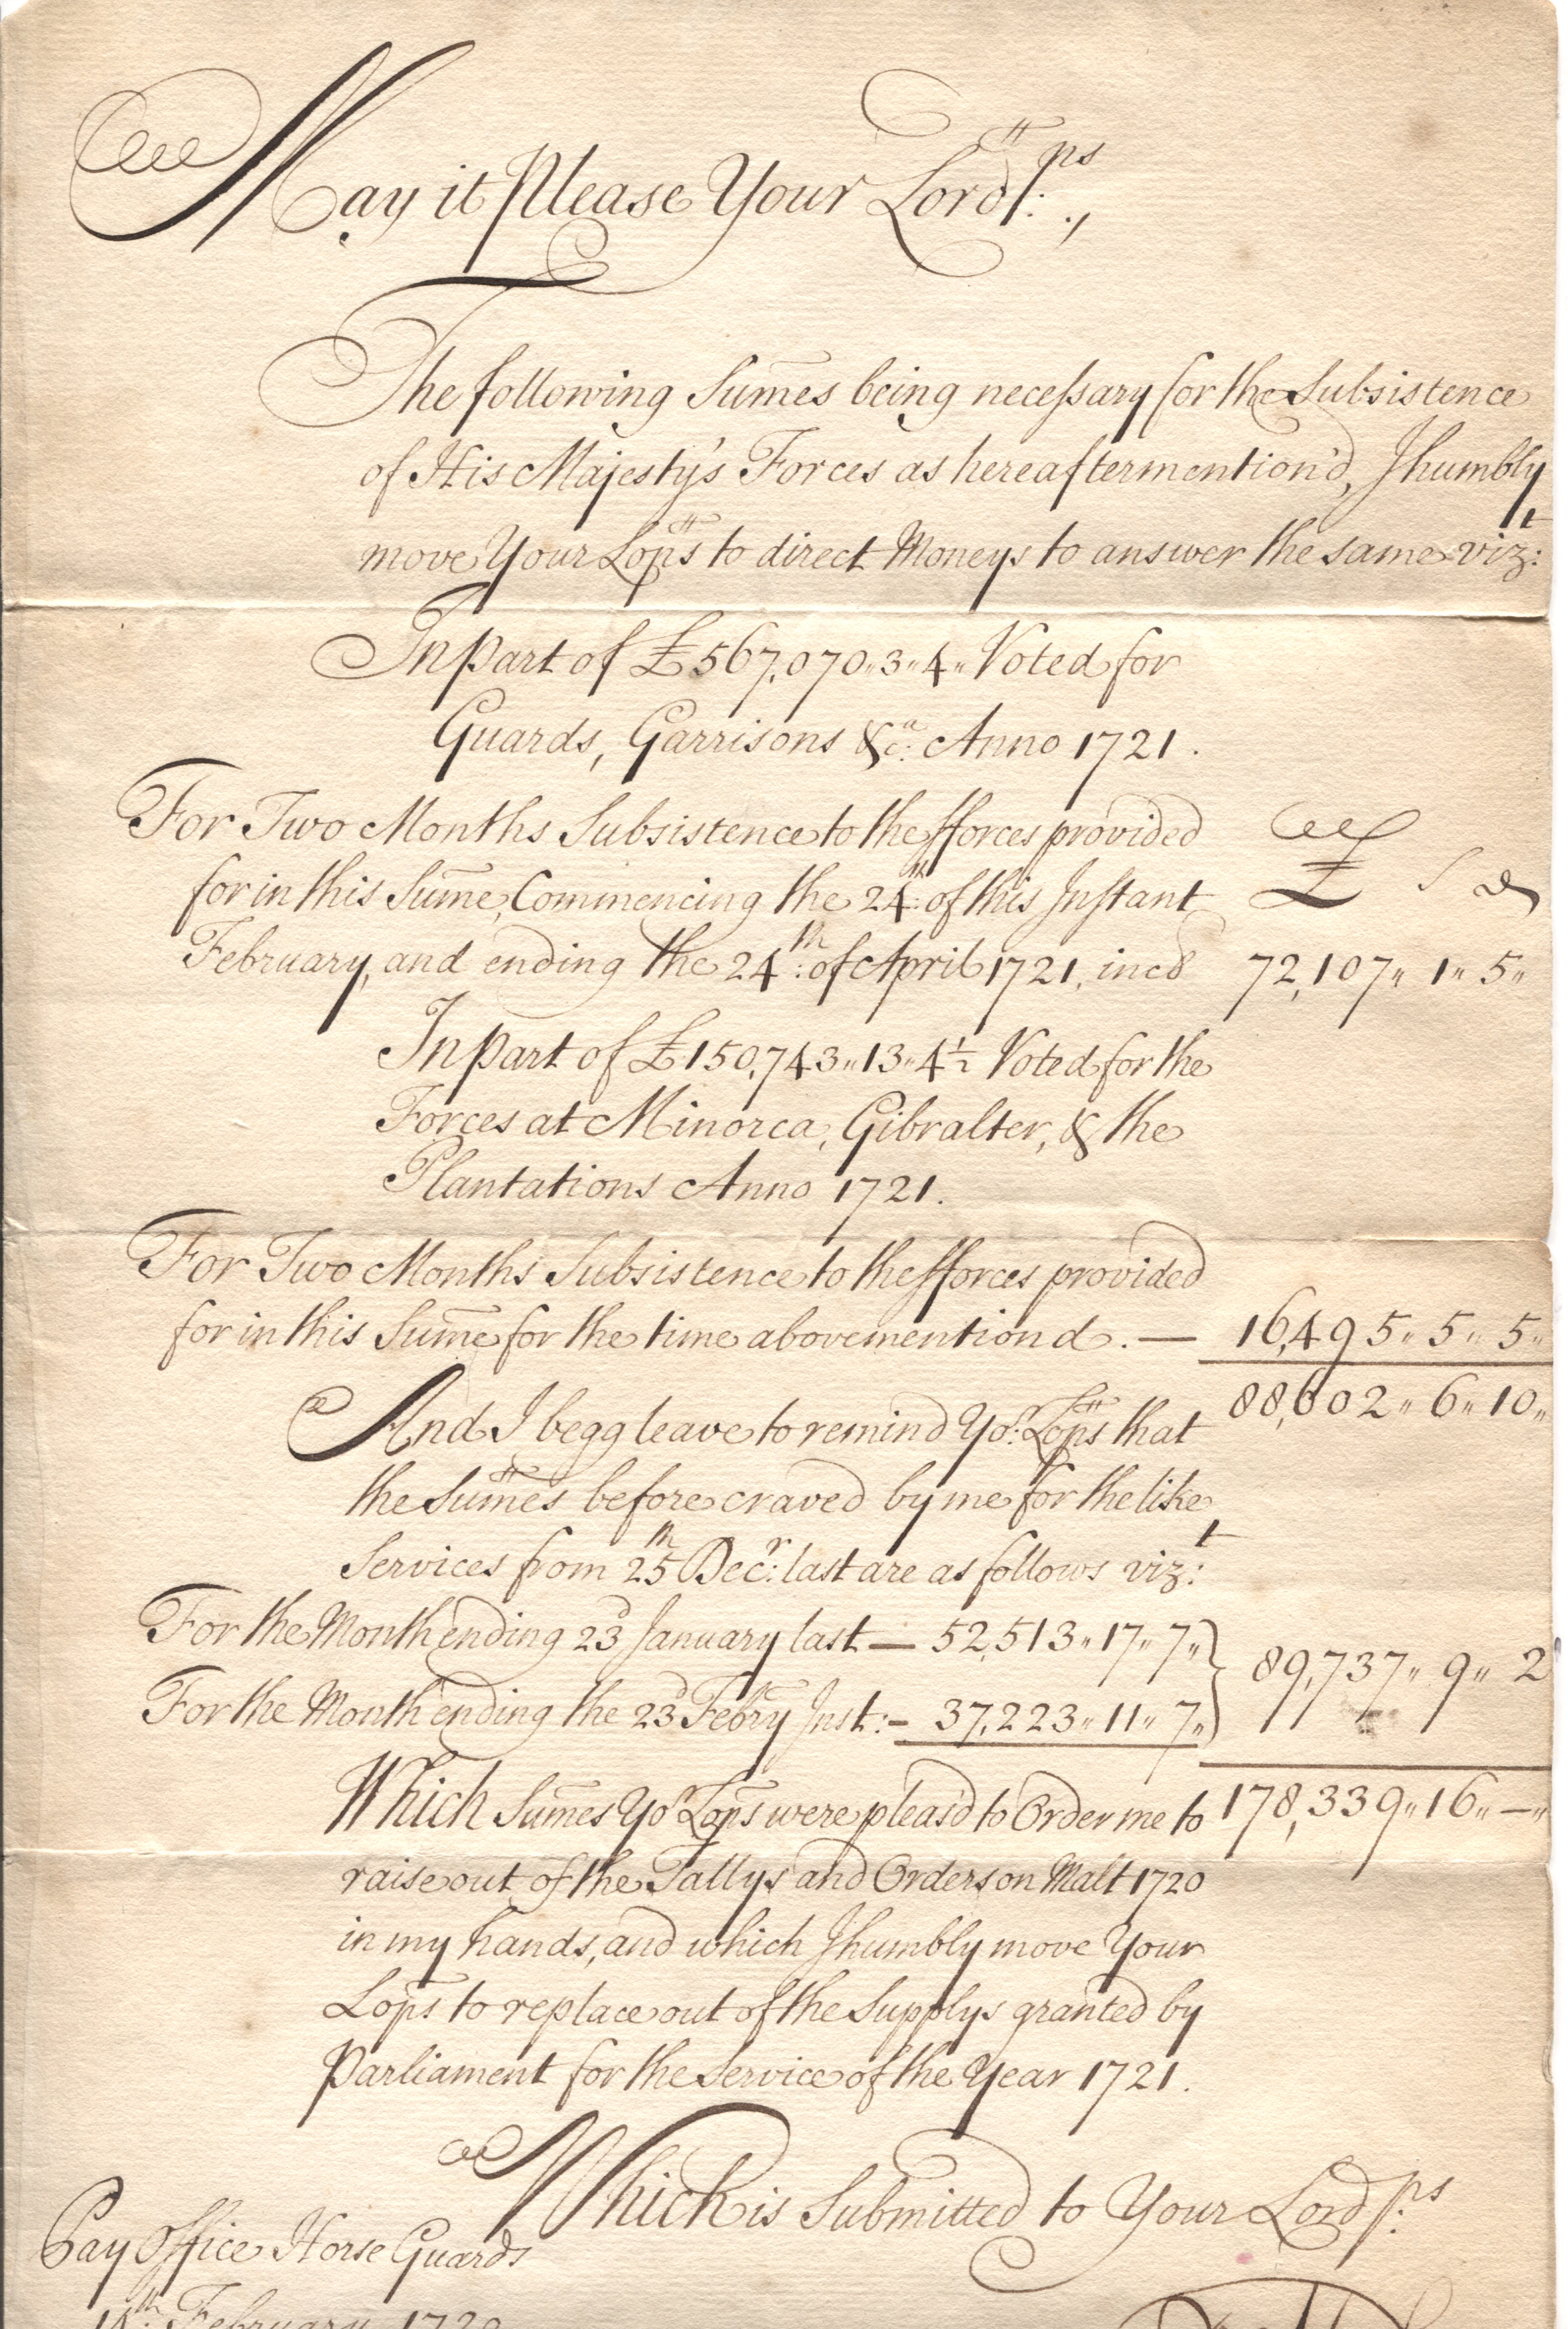 May it Please Your Lordps.,
The following Sum̄es being necessary for the Subsistence
of His Majesty's Forces as hereaftermention'd, I humbly
move Your Lopps to direct Moneys to answer the same vizt:
In part of £567,070„3„4„ Voted for
Guards, Garrisons &ca: Anno 1721.
For Two Months Subsistence to the fforces provided
for in this Sum̄e, Commencing the 24th: of this Instant £ s d
February, and ending the 24th: of April 1721, incd 72,107„ 1„ 5„
In part of £150,743„13„4½ Voted for the
Forces at Minorca, Gibralter, & the
Plantations Anno 1721.
For Two Months Subsistence to the fforces provided
for in this Sum̄e for the time abovemention'd. — 16,495„ 5„ 5„
88,602„ 6„ 10„
And I begg leave to remind Yor: Lopps that
the Sum̄es before craved by me for the like
Services from 25th Decr: last are as follows vizt:
For the Month ending 23d January last — 52,513„ 17„ 7„
89,737„ 9„ 2
For the Month ending the 23d Febry Inst: – 37,223„ 11„ 7„
Which Sum̄es Yor Lopps were pleas'd to Order me to 178,339„ 16„ —„
raise out of the Tallys and Orders on Malt 1720
in my hands, and which I humbly move Your
Lopps to replace out of the Supplys granted by
Parliament for the Service of the Year 1721.
Which is Submitted to Your Lordps:
Pay Office Horse Guards
14th: February 1720